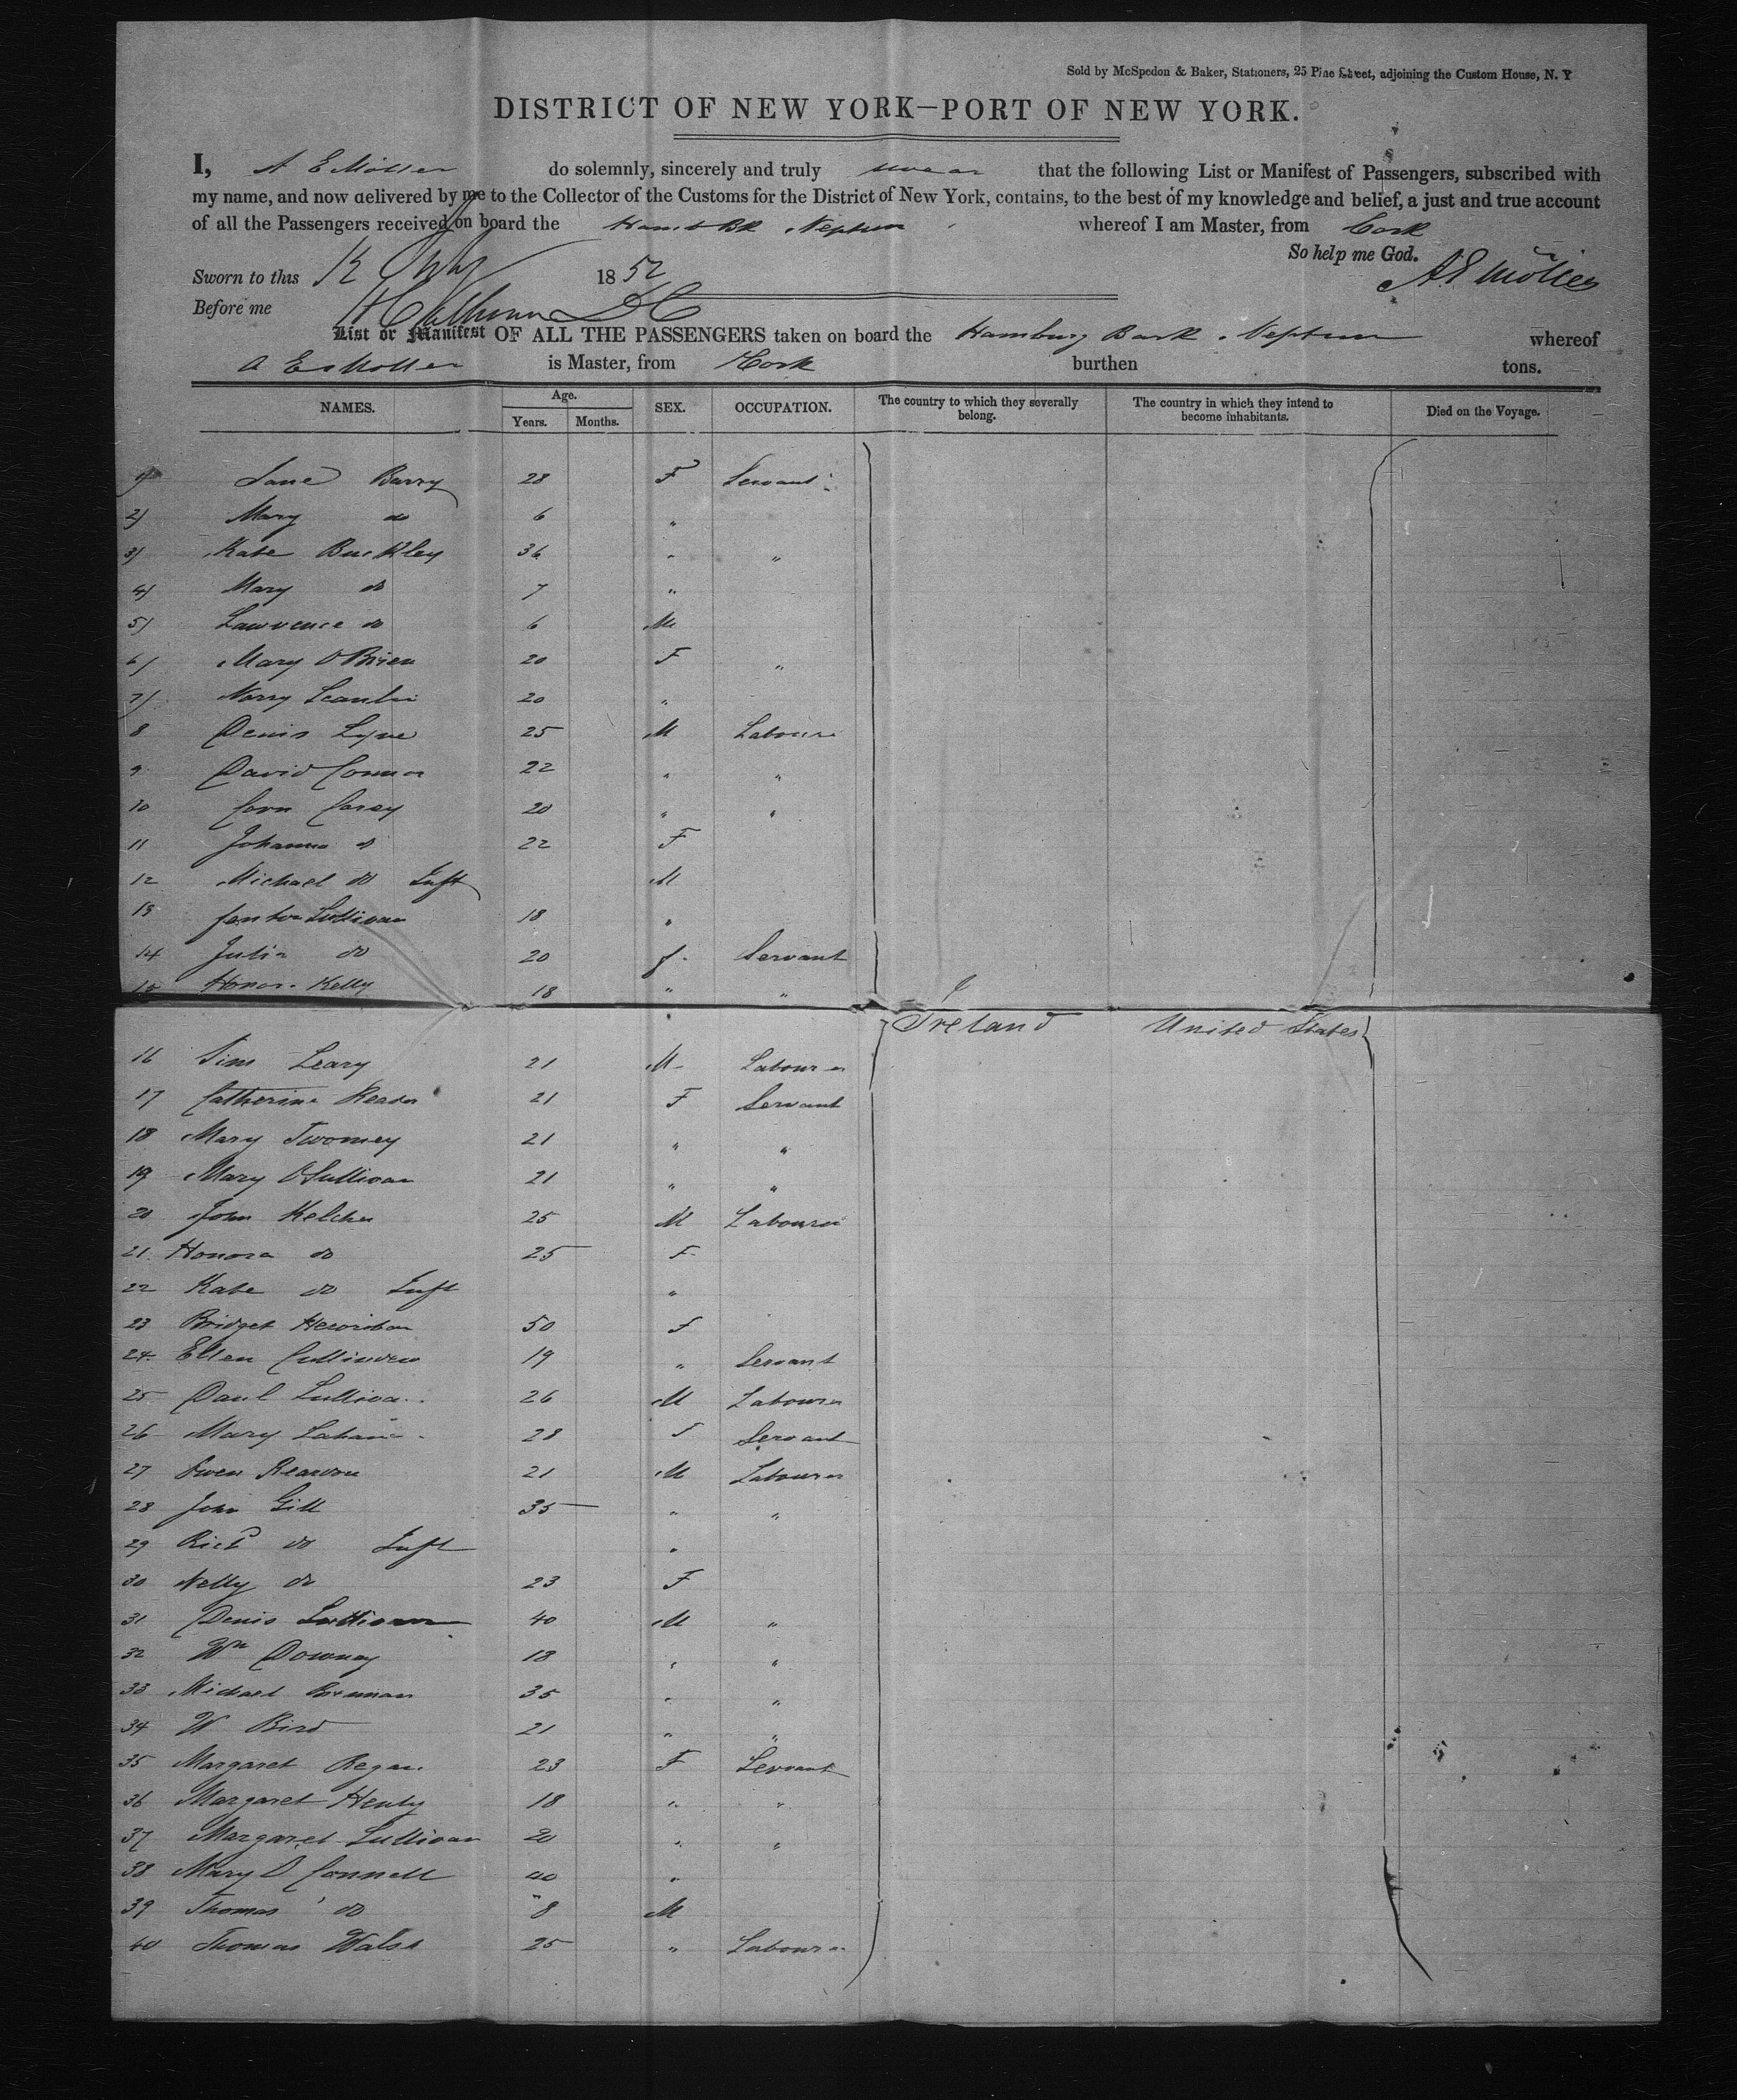 Sold by McSpedon & Baker, Stationers, 25 Pine Street, adjoining the Custom House, N. Y
DISTRICT OF NEW YORK—PORT OF NEW YORK.
I, A E Möller do solemnly, sincerely and truly swear that the following List or Manifest of Passengers, subscribed with
my name, and now delivered by me to the Collector of the Customs for the District of New York, contains, to the best of my knowledge and belief, a just and true account
of all the Passengers received on board the Hamb Bk Neptun whereof I am Master, from Cork
So help me God.
Sworn to this 12 1852 A E Möller
Before me
List or Manifest OF ALL THE PASSENGERS taken on board the Hamburg Bark Neptun whereof
A E Möller is Master, from Cork burthen tons.
NAMES. Age. Years. Months. SEX. OCCUPATION. The country to which they severally belong. The country in which they intend to become inhabitants. Died on the Voyage.
1) Jane Barry 28 F Servant
2) Mary do 6 "
3) Kate Buckley 36 " "
4) Mary do 7 "
5) Lawrence do 6 M
6) Mary O'Brien 20 F "
7) Norry 20 "
8 Denis Lyne 25 M Labourer
9 David Connor 22 " "
10 Corn Carey 20 " "
11 Johanna do 22 F
12 Michael do Inft M
13 Sullivan 18 "
14 Julia do 20 f Servant
15 Honor. Kelly 18 " "
Ireland United States
16 Tim Leary 21 M Labourer
17 Catherine 21 F Servant
18 Mary Twomey 21 " "
19 Mary O'Sullivan 21 " "
20 John Kelcher 25 M Labourer
21. Honora do 25 F
22 Kate do Inft "
23 Bridget 50 f
24. Ellen 19 " Servant
25 Danl Sullivan 26 M Labourer
26 Mary 28 f Servant
27 Owen Reardon 21 M Labourer
28 John Gill 35 " "
29 Richd do Inft "
30 Nelly do 23 F
31 Denis Sullivan 40 M "
32 Wm Downey 18 " "
33 Michael Brennan 35 " "
34 W Bird 21 " "
35 Margaret Regan 23 F Servant
36 Margaret Henly 18 " "
37 Margaret Sullivan 20 " "
38 Mary O'Connell 40 "
39 Thomas do 8 M
40 Thomas Walsh 25 " Labourer